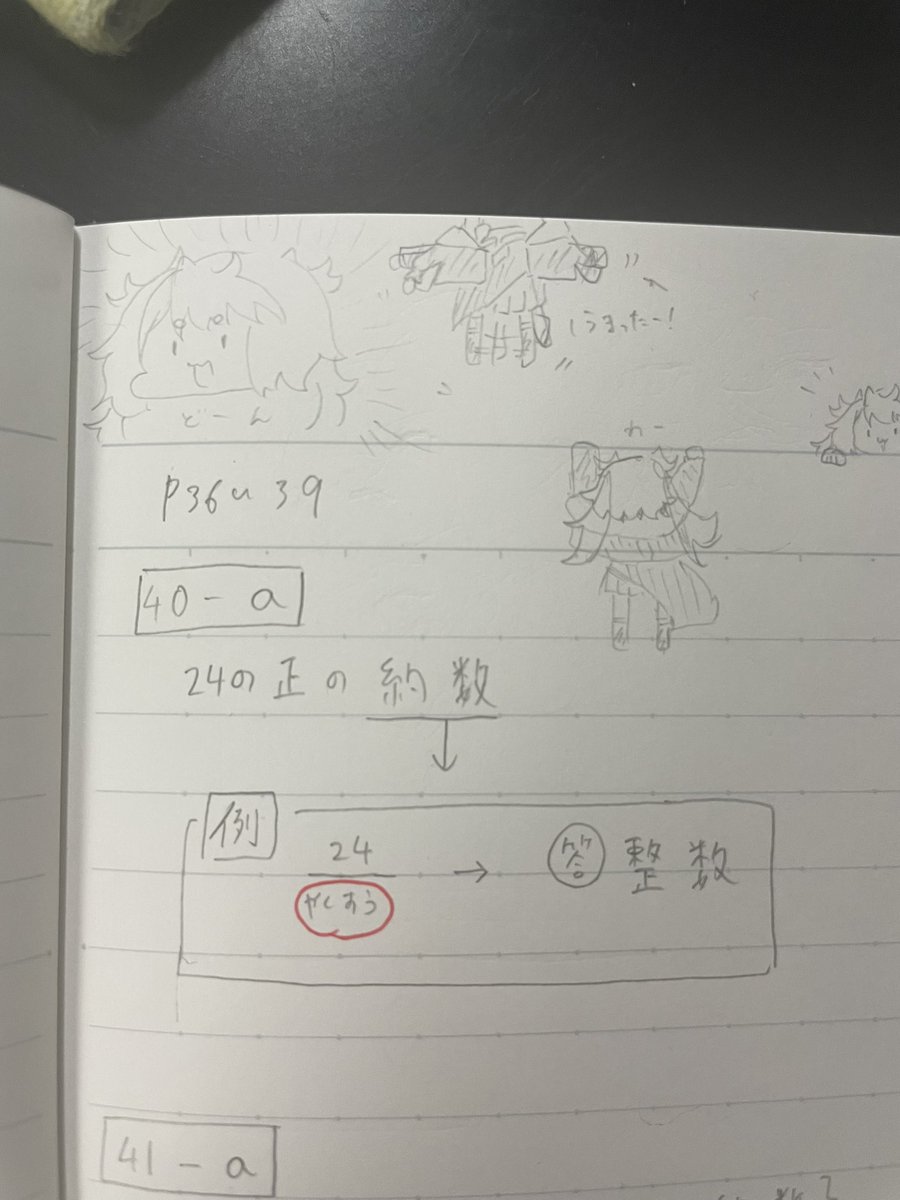 しまったー!
どーん
わー
P36~39
40-a
24の正の約数
↓
例
24
やくすう
→ 答 整数
41-a